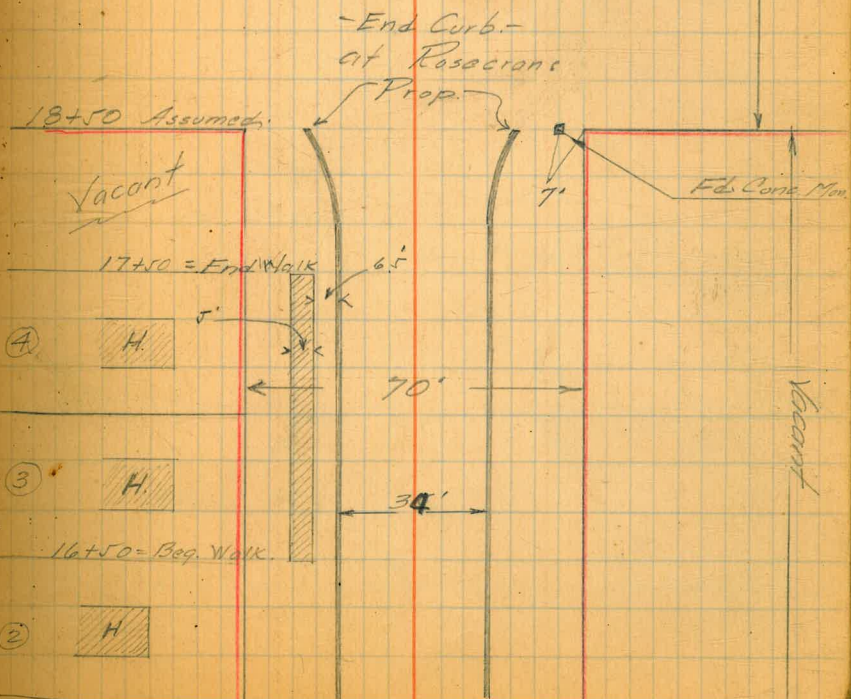 -End Curb.-
at Rosecrans
Prop.
18+50 Assumed.
Vacant
7'
Fd. Conc. Mon.
17+50 = End Walk
6.5'
5'
4
H.
70'
Vacant
3
H.
34'
16+50 = Beg. Walk.
2
H